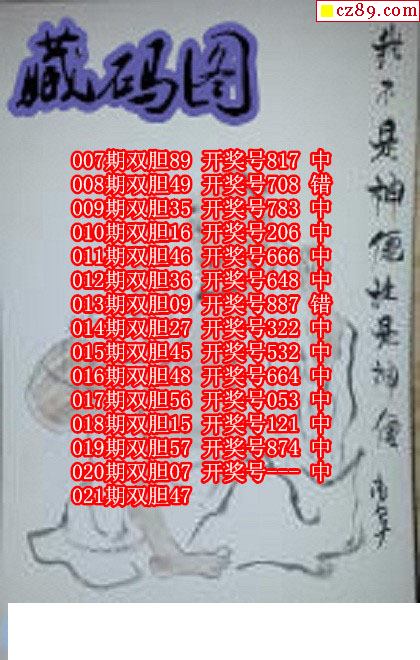 cz89.com
藏码图
007期双胆89 开奖号817 中
008期双胆49 开奖号708 错
009期双胆35 开奖号783 中
010期双胆16 开奖号206 中
011期双胆46 开奖号666 中
012期双胆36 开奖号648 中
013期双胆09 开奖号887 错
014期双胆27 开奖号322 中
015期双胆45 开奖号532 中
016期双胆48 开奖号664 中
017期双胆56 开奖号053 中
018期双胆15 开奖号121 中
019期双胆57 开奖号874 中
020期双胆07 开奖号--- 中
021期双胆47
我不是神仙

是神仙